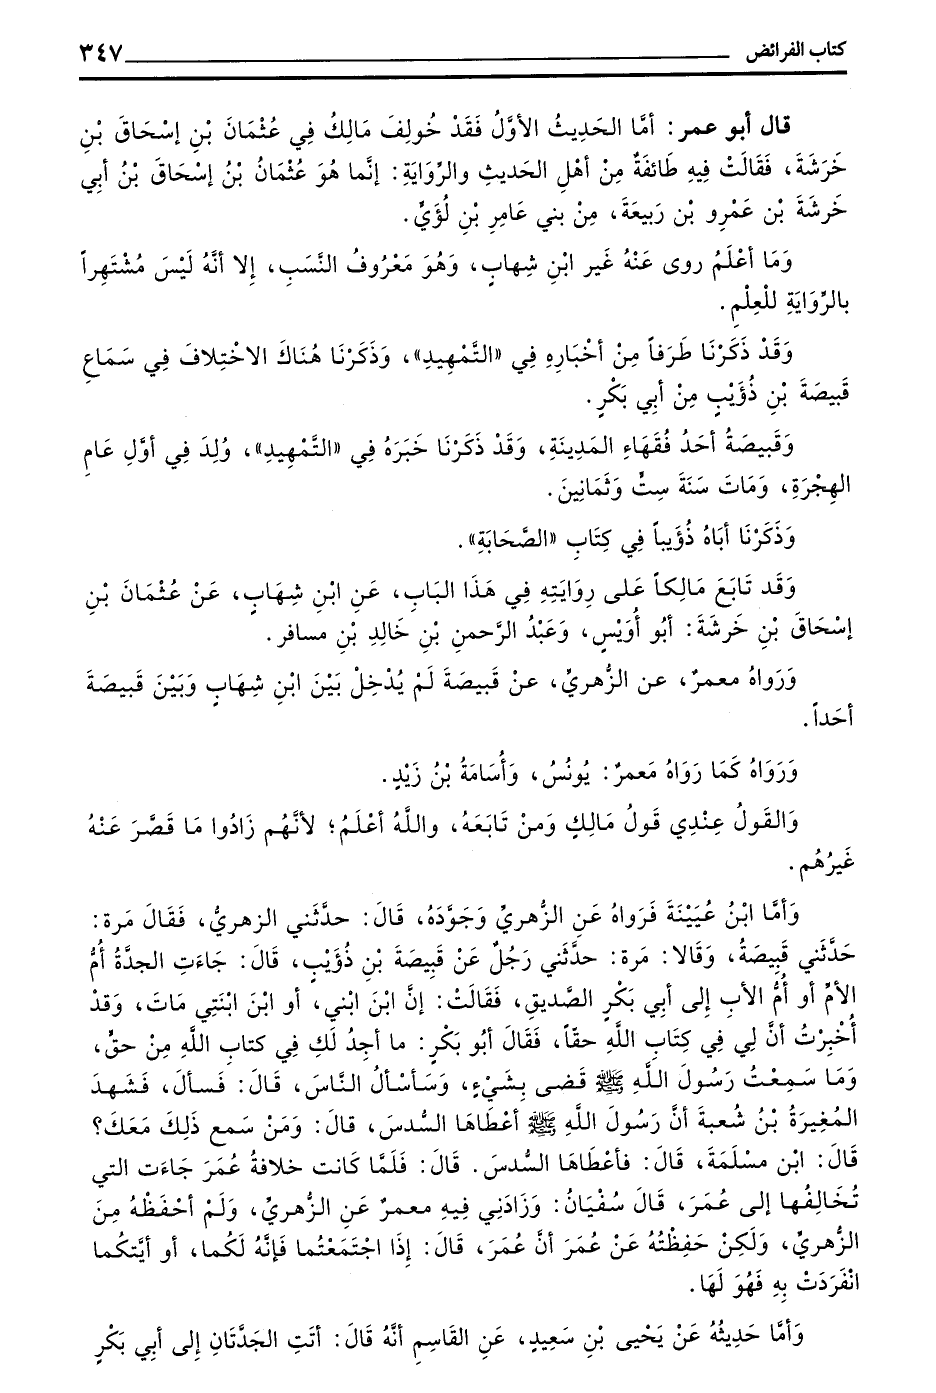 كتاب الفرائض ٣٤٧
قال أبو عمر: أمَّا الحَدِيثُ الأوَّلُ فَقَدْ خُولِفَ مَالِكٌ فِي عُثْمَانَ بْنِ إسْحَاقَ بْنِ
خَرَشَةَ، فَقَالَتْ فِيهِ طَائفَةٌ مِنْ أهْلِ الحَديثِ والرِّوَايَةِ: إنَّما هُوَ عُثْمَانُ بْنُ إسْحَاقَ بْنُ أبي
خَرشَةَ بْن عَمْرِو بْن رَبيعَةَ، مِنْ بني عَامِرِ بْنِ لُؤَيٍّ.
وَمَا أعْلَمُ روى عَنْهُ غَير ابْنِ شِهابٍ، وَهُوَ مَعْرُوفُ النَّسَبِ، إلا أنَّهُ لَيْسَ مُشْتَهِراً
بالرِّوَايَةِ للْعِلْمِ.
وَقَدْ ذَكَرْنَا طَرَفاً مِنْ أخْبَارِهِ فِي «التَّمْهِيدِ»، وَذَكَرْنَا هُنَاكَ الاخْتِلافَ فِي سَمَاعِ
قَبيصَةَ بْنِ ذُؤَيْبٍ مِنْ أبي بَكْرٍ.
وَقَبيصَةُ أحَدُ فُقَهَاءِ المَدِينَةِ، وَقَدْ ذَكَرْنَا خَبَرَهُ فِي «التَّمْهِيدِ»، وُلِدَ فِي أوَّلِ عَامِ
الهِجْرَةِ، وَمَاتَ سَنَةَ سِتٍّ وَثَمَانِينَ.
وَذَكَرْنَا أبَاهُ ذُؤَيباً فِي كِتَابِ «الصَّحَابَةِ».
وَقَد تَابَعَ مَالِكاً عَلى رِوَايَتِهِ فِي هَذَا البَابِ، عَنِ ابْنِ شِهَابٍ، عَنْ عُثْمَانَ بْنِ
إسْحَاقَ بْنِ خَرشَةَ: أبُو أُوَيْسٍ، وَعَبْدُ الرَّحمنِ بْنِ خَالِدِ بْنِ مسافر.
وَرَوَاهُ معمرٌ، عن الزُّهريِّ، عنْ قَبيصَةَ لَمْ يُدْخِلْ بَيْنَ ابْنِ شِهَابٍ وَبَيْنَ قَبيصَةَ
أحَداً.
وَرَوَاهُ كَمَا رَوَاهُ مَعمرٌ: يُونُسُ، وَأُسَامَةُ بْنُ زَيْدٍ.
وَالقَولُ عِنْدِي قَولُ مَالِكٍ وَمنْ تَابَعَهُ، واللَّهُ أعْلَمُ؛ لأنَّهُم زَادُوا مَا قَصَّرَ عَنْهُ
غَيرُهُم.
وَأمَّا ابْنُ عُيَيْنَةَ فَرَواهُ عَنِ الزُّهريِّ وَجَوَّدَهُ، قَالَ: حدَّثَني الزهريُّ، فَقَالَ مَرة:
حَدَّثَني قَبيصَةُ، وَقَالا: مَرة: حدَّثَني رَجُلٌ عَنْ قَبيصَةَ بْنِ ذُؤَيْبٍ، قَالَ: جَاءَتِ الجدَّةُ أُمُّ
الأمِّ أو أُمُّ الأبِ إلى أبي بَكْرٍ الصِّديقِ، فَقَالَتْ: إنَّ ابْنَ ابْني، أو ابْنَ ابْنَتِي مَاتَ، وَقدْ
أُخْبِرْتُ أنَّ لي فِي كِتَابِ اللَّهِ حقّاً، فَقَالَ أبُو بَكْرٍ: ما أجِدُ لَكِ فِي كتابِ اللَّهِ مِنْ حقٍّ،
وَمَا سَمِعْتُ رَسُولَ اللَّهِ ﷺ قَضى بِشَيْءٍ، وَسَأسْألُ النَّاسَ، قَالَ: فَسألَ، فَشَهِدَ
المُغِيرَةُ بْنُ شُعبةَ أنَّ رَسُولَ اللَّهِ ﷺ أعْطَاهَا السُّدسَ، قالَ: وَمَنْ سَمع ذَلِكَ مَعَكَ؟
قَالَ: ابْن مسْلَمَةَ، قَالَ: فأعْطَاهَا السُّدسَ. قَالَ: فَلَمَّا كَانت خلافةُ عُمَرَ جَاءَت التي
تُخَالِفُها إلى عُمَرَ، قَالَ سُفْيَانُ: وَزَادَنِي فِيهِ معمرٌ عَنِ الزُّهريِّ، وَلَمْ أحْفَظْهُ مِنَ
الزُّهريِّ، وَلَكِنْ حَفِظْتُهُ عَنْ عُمَرَ أنَّ عُمَرَ، قَالَ: إذَا اجتَمَعْتُما فَإنَّهُ لَكُما، أو أيَّتكُما
انْفَرَدَتْ بِهِ فَهُوَ لَهَا.
وَأمَّا حَدِيثُهُ عَنْ يَحْيى بْنِ سَعِيدٍ، عَنِ القَاسِمِ أنَّهُ قَالَ: أتَتِ الجَدَّتَانِ إلى أبي بَكْرٍ